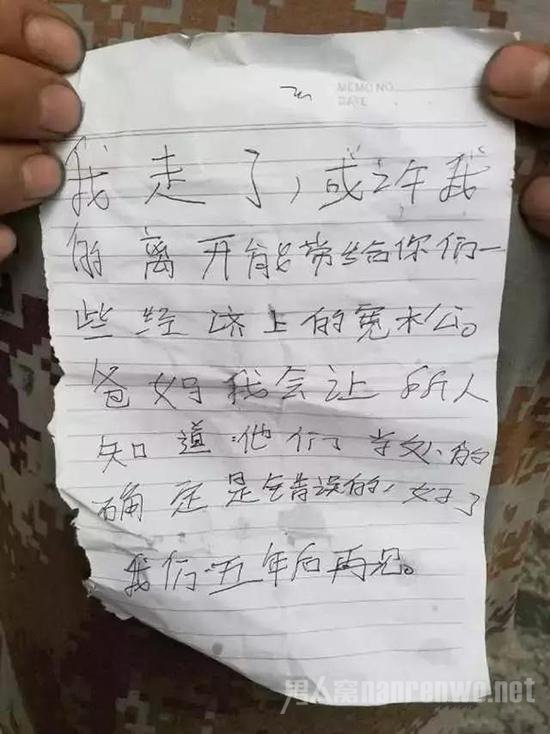 MEMO NO.
DATE
我走了，或许我
的离开能带给你们一
些经济上的宽松。
爸妈我会让所人
知道他们学校的
确定是错误的，好了
我们五年后再见。
男人窝nanrenwo.net